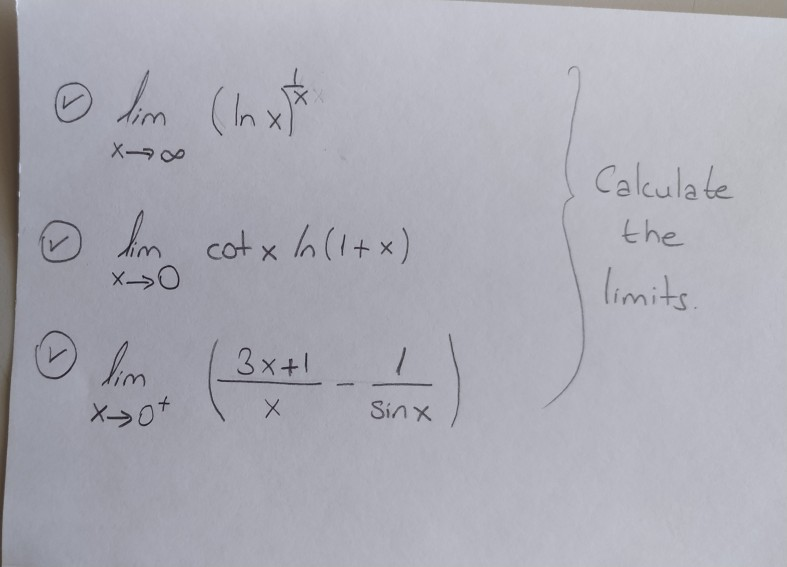 lim (ln x)^{1/x}
x→∞
lim cot x ln(1+x)
x→0
lim (3x+1/x − 1/sin x)
x→0⁺
Calculate
the
limits.